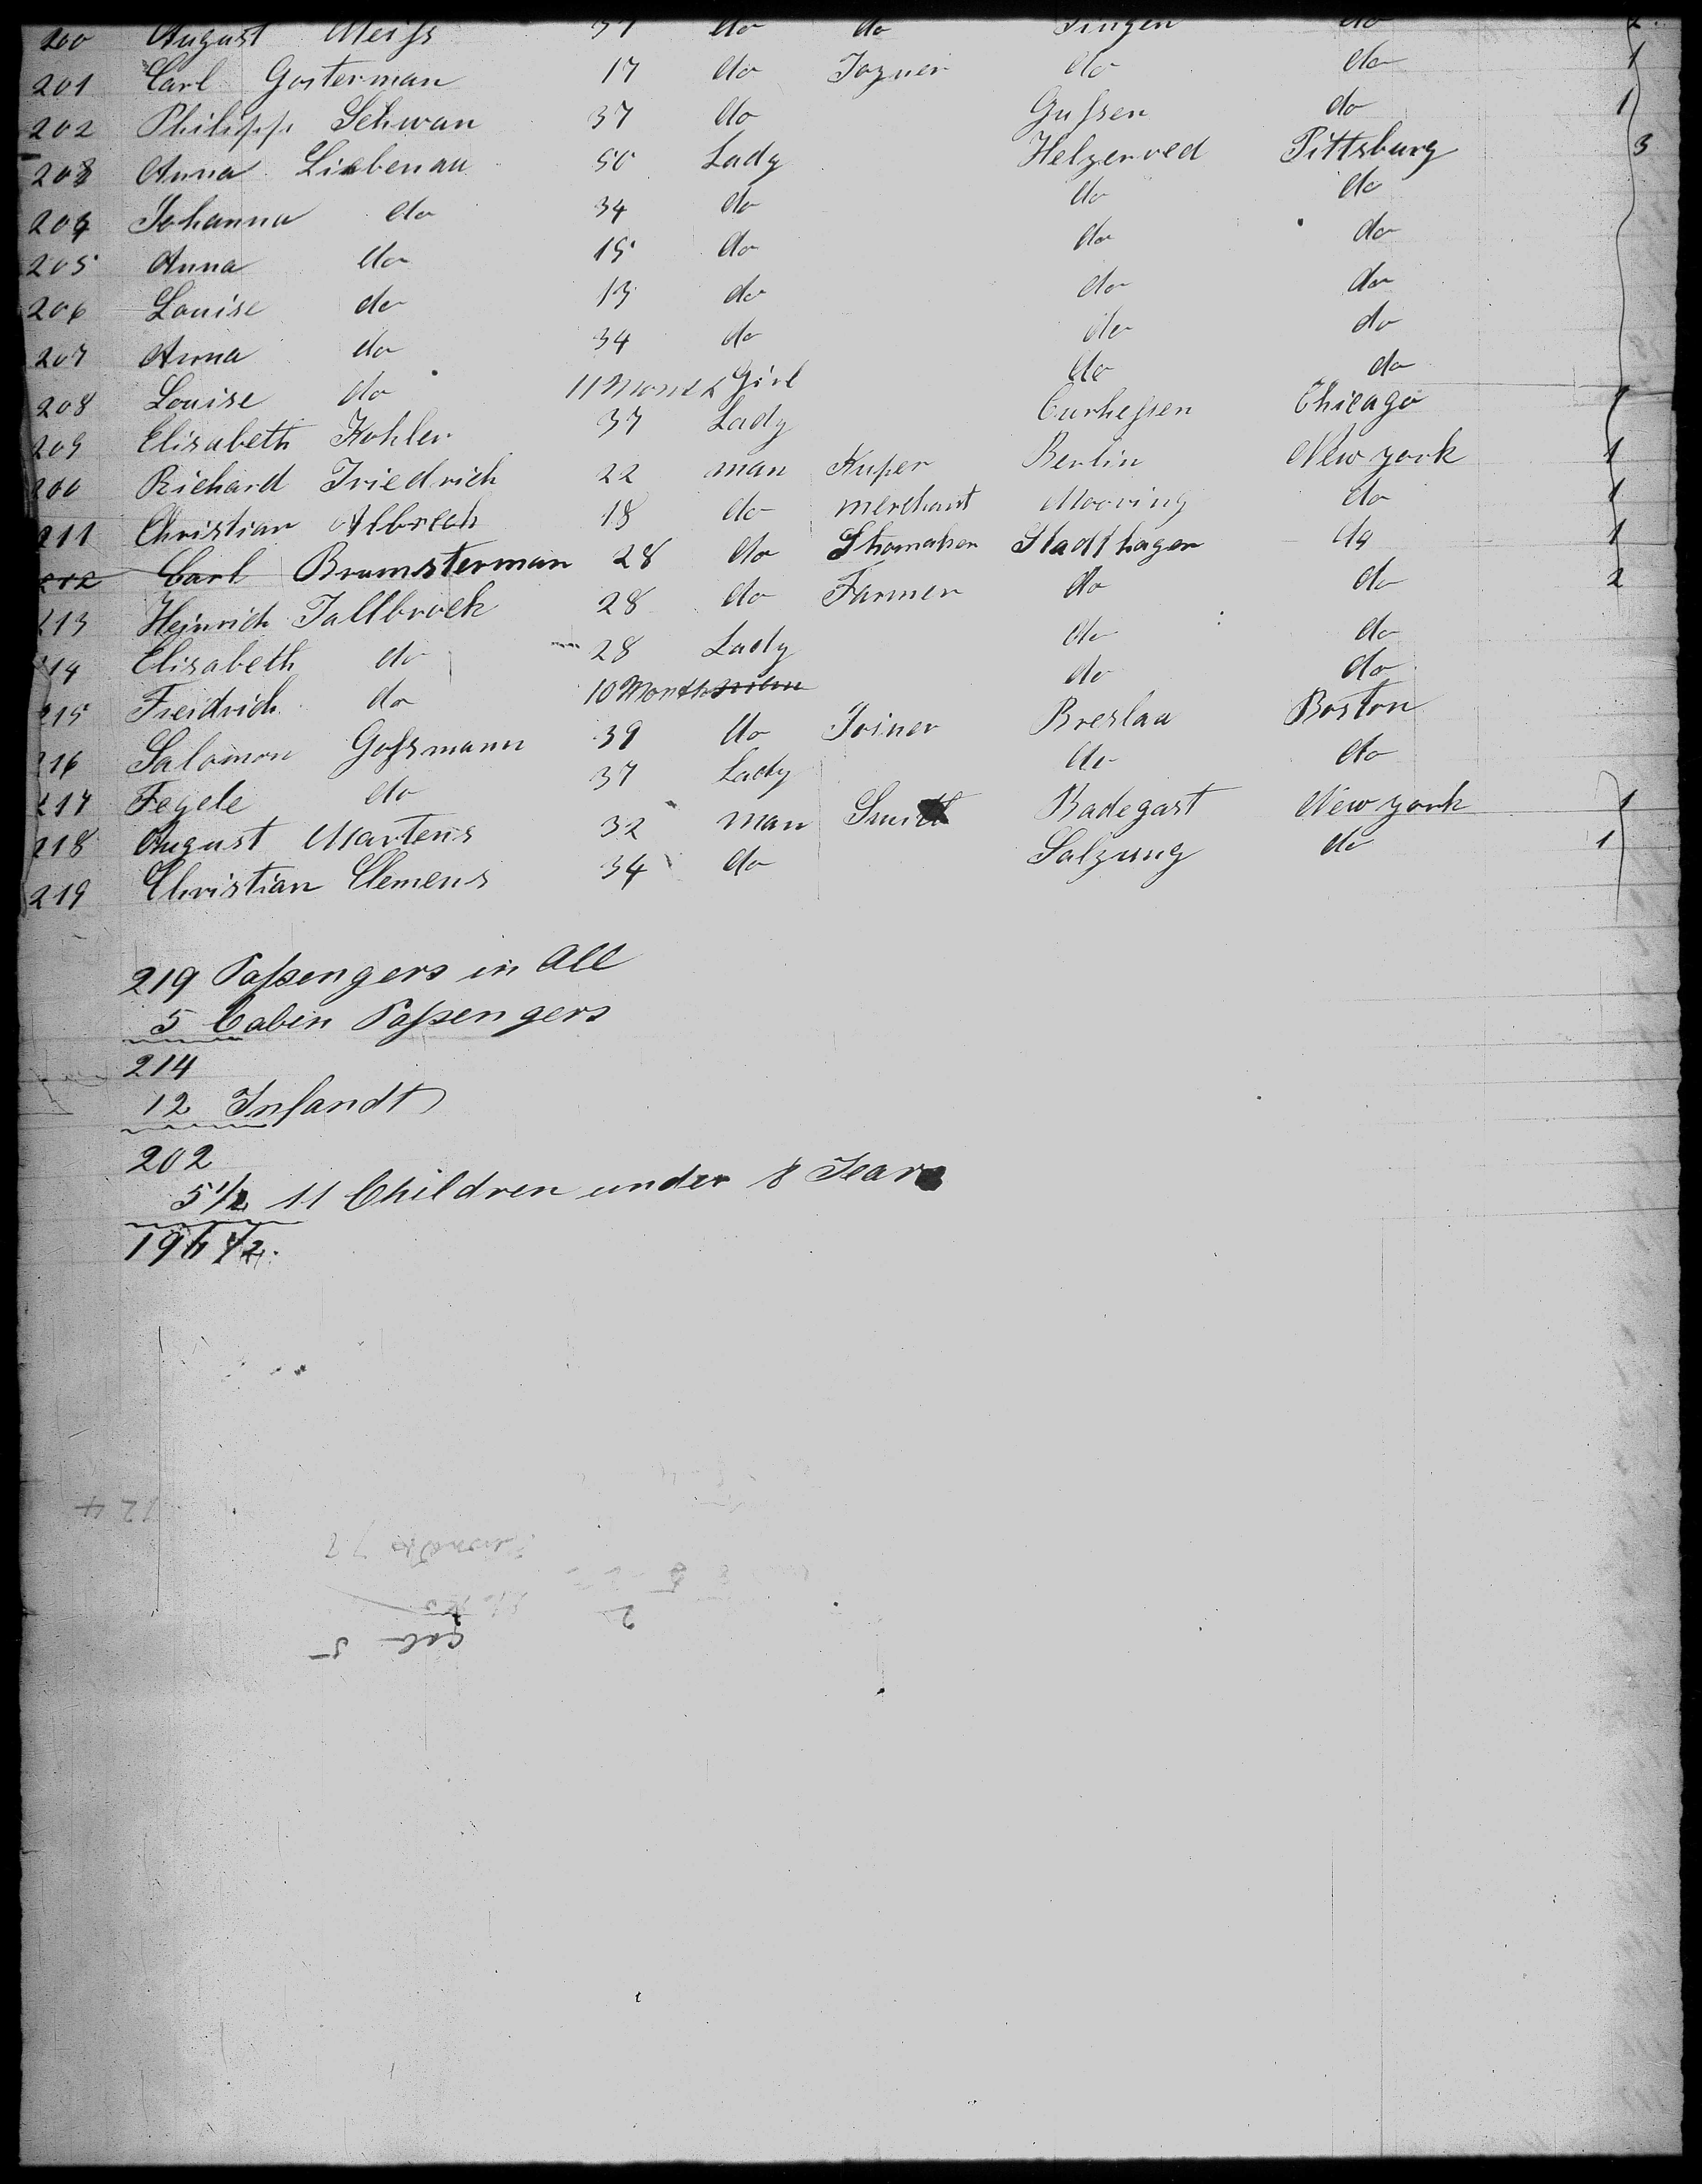 200 August Weiss 37 do do Singen do 2
201 Carl Gosterman 17 do Joyner do do 1
202 Philipp Schwan 37 do Gussen do 1
203 Anna Liebenau 50 Lady Helzerved Pittsburg 3
204 Johanna do 34 do do do
205 Anna do 15 do do do
206 Louise do 13 do do do
207 Anna do 34 do do do
208 Louise do 11 Month Girl do do
209 Elisabeth Kohler 37 Lady Curhessen Chicago 1
200 Richard Friedrich 22 man Kuper Berlin New york 1
211 Christian Albrech 18 do merchant Mooring do 1
212 Carl Brumsterman 28 do Shomaker Stadthagen do 1
213 Heinrich Tallbrock 28 do Farmer do do 2
214 Elisabeth do 28 Lady do do
215 Freidrich do 10 Month do do
216 Salomon Gossmann 39 do Joiner Breslau Boston
217 Fegele do 37 Lady do do
218 August Martens 32 man Smith Badegast New york 1
219 Christian Clemens 34 do Salzung do 1
219 Passengers in All
5 Cabin Passengers
214
12 Infandt
202
5 1/2 11 Children under 8 Years
196 1/2